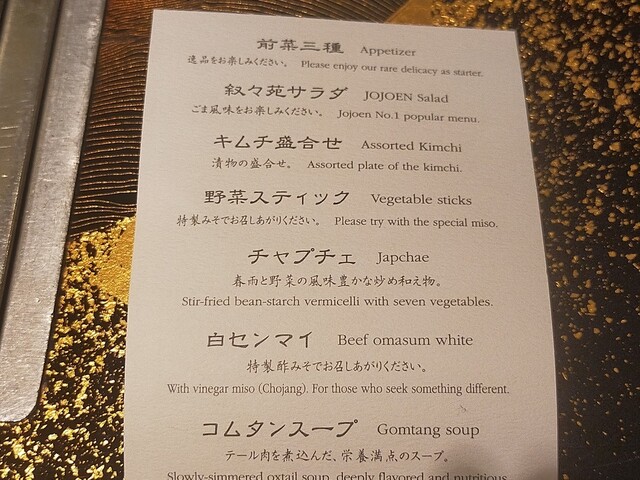 前菜三種 Appetizer
逸品をお楽しみください。 Please enjoy our rare delicacy as starter.
叙々苑サラダ JOJOEN Salad
ごま風味をお楽しみください。 Jojoen No.1 popular menu.
キムチ盛合せ Assorted Kimchi
漬物の盛合せ。 Assorted plate of the kimchi.
野菜スティック Vegetable sticks
特製みそでお召しあがりください。 Please try with the special miso.
チャプチェ Japchae
春雨と野菜の風味豊かな炒め和え物。
Stir-fried bean-starch vermicelli with seven vegetables.
白センマイ Beef omasum white
特製酢みそでお召しあがりください。
With vinegar miso (Chojang). For those who seek something different.
コムタンスープ Gomtang soup
テール肉を煮込んだ、栄養満点のスープ。
Slowly-simmered oxtail soup, deeply flavored and nutritious